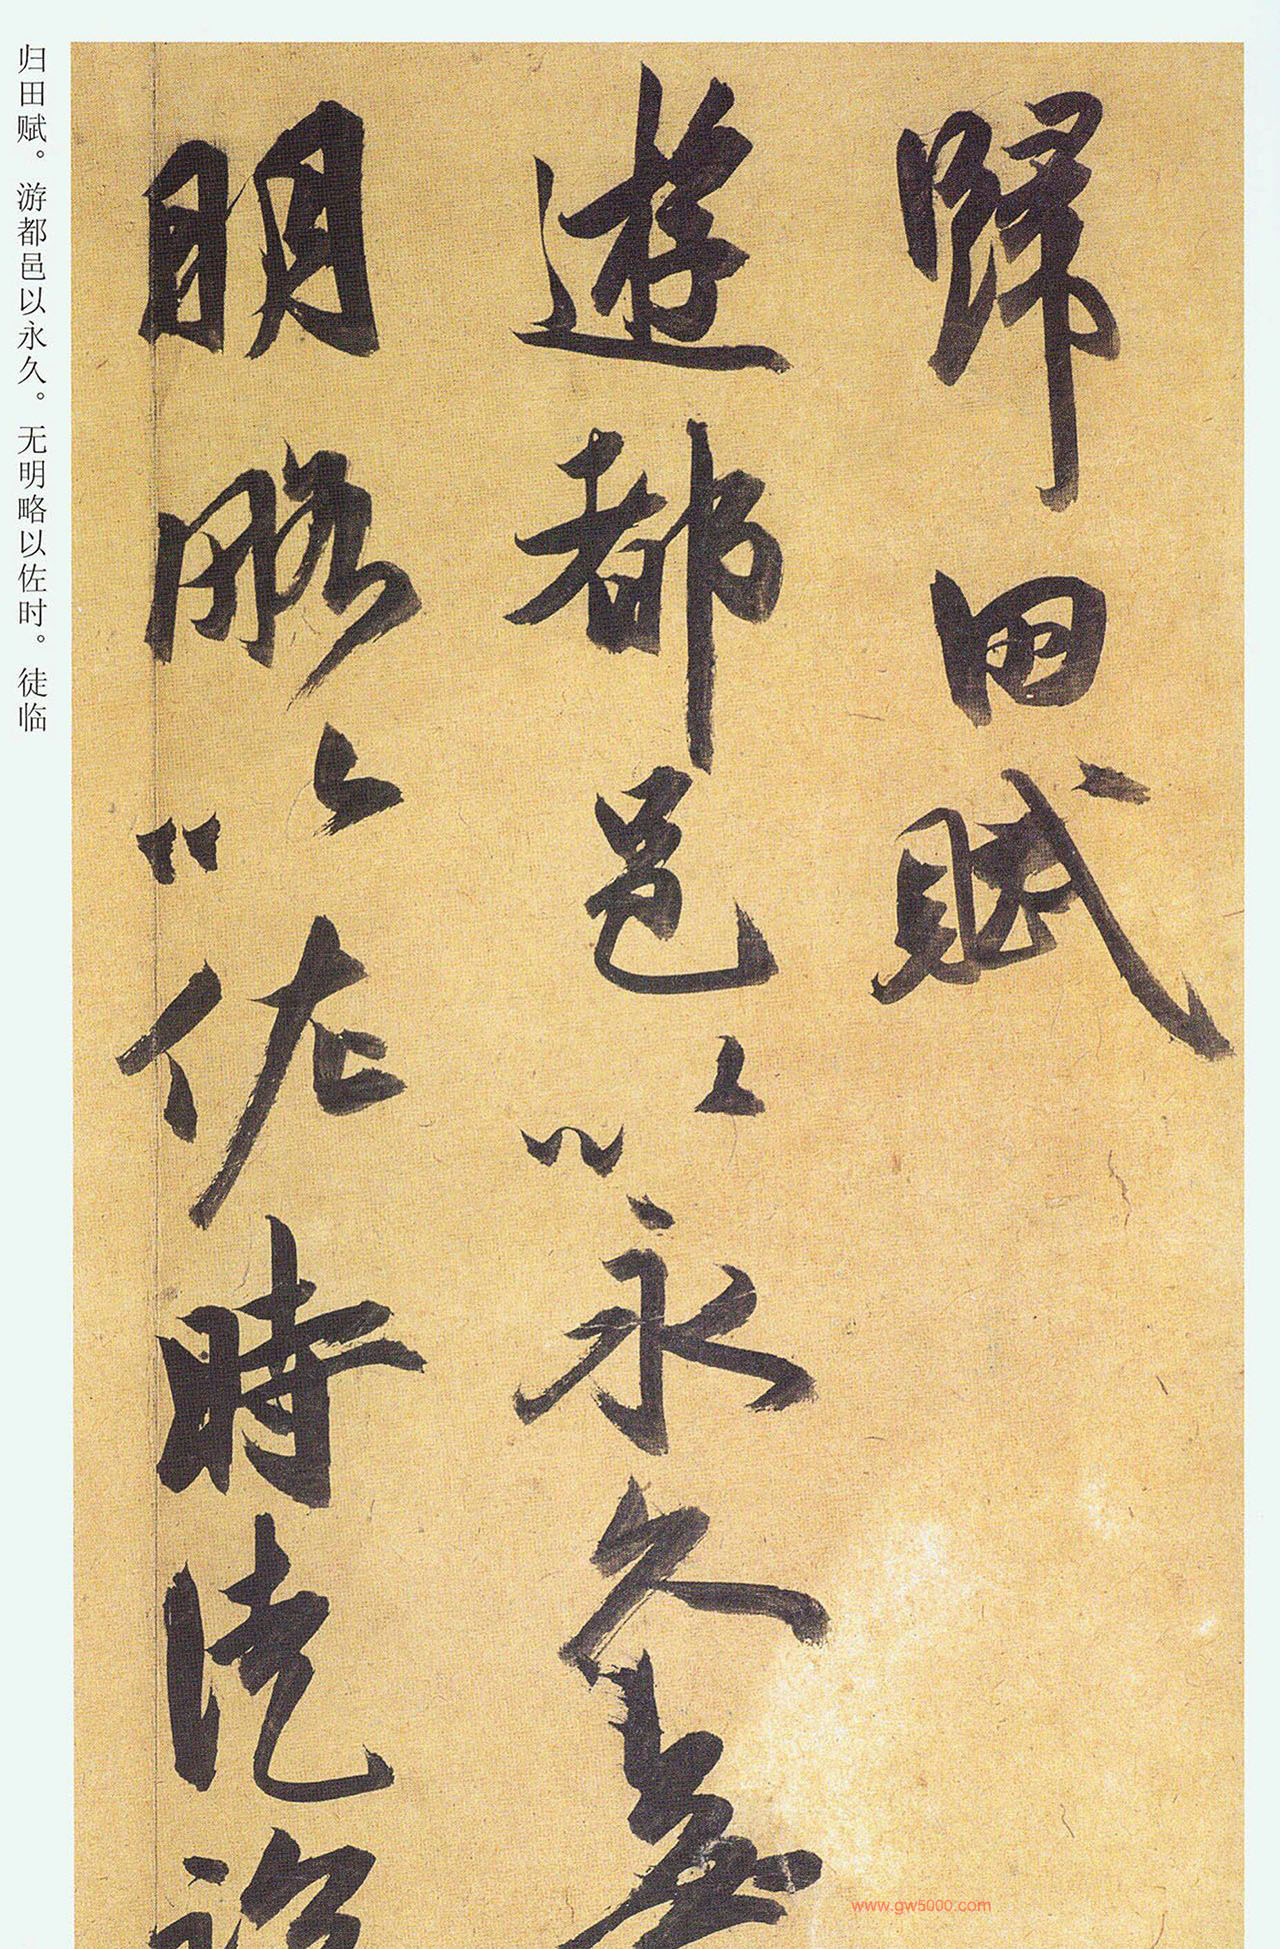 歸田賦
遊都邑以永久無
明略以佐時徒臨
归田赋。游都邑以永久。无明略以佐时。徒临
www.gw5000.com